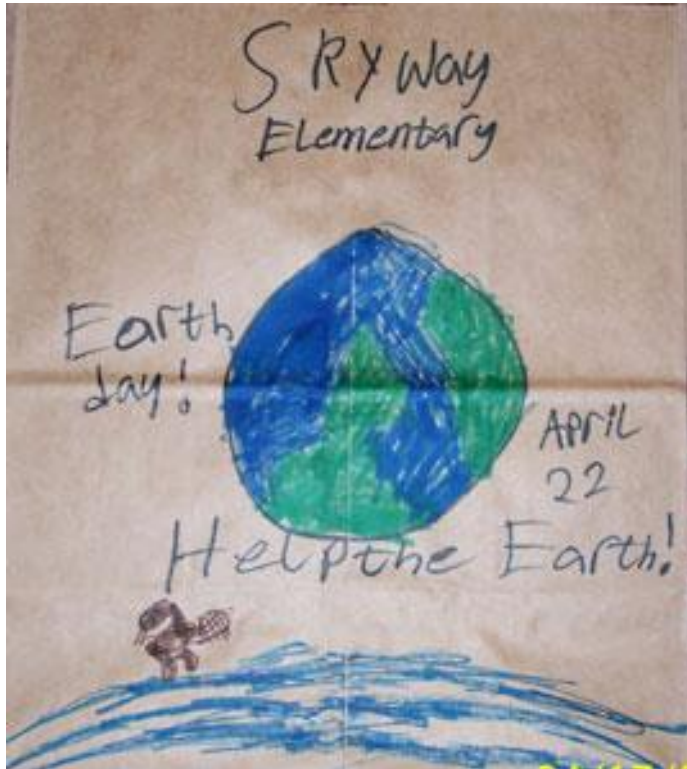 SKyway
Elementary
Earth
day!
April
22
Help the Earth!